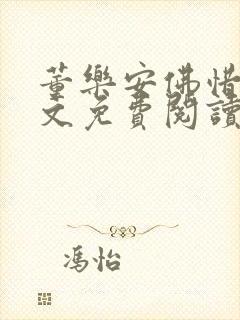 董樂安佛惜
文免費閱讀
馮怡